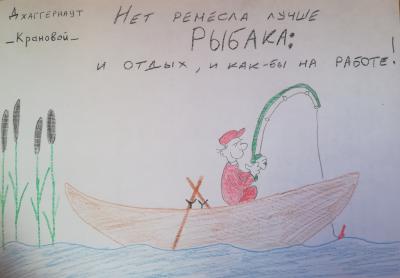 Джаггернаут
_Крановой_
Нет ремесла лучше
рыбака:
и отдых, и как-бы на работе!